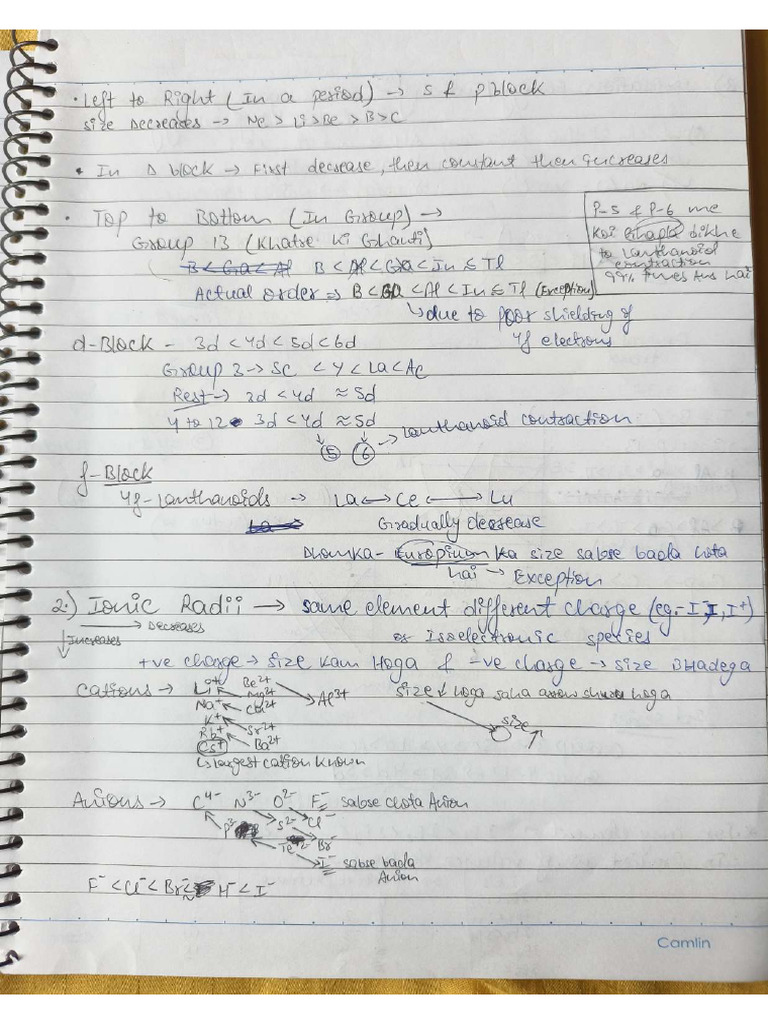 • Left to Right (In a period) → s & p block
size Decreases → Ne > Li > Be > B > C
• In D block → First decrease, then constant then increases
• Top to Bottom (In Group) →
Group 13 (Khatre ki Ghanti)
B < Ga < Al B < Al < Ga < In ≤ Tl
Actual order ⇒ B < Ga < Al < In ≤ Tl (Exception)
↳ due to poor shielding of
4f electrons
P-5 & P-6 me
Koi dikhe
to Lanthanoid
contraction
99% times Ans hai
d-Block - 3d < 4d < 5d < 6d
Group 3 → Sc < Y < La < Ac
Rest → 3d < 4d ≈ 5d
4 to 12 3d < 4d ≈ 5d
5 6 → Lanthanoid contraction
f-Block
4f-Lanthanoids → La ↔ Ce ↔ Lu
La
Gradually decrease
- Europium ka size sabse bada hota
hai → Exception
2.) Ionic Radii → same element different charge (eg.- I⁻, I, I⁺)
→ Decreases
↓ Increases
or Isoelectronic species
+ve charge → size kam Hoga & -ve charge → size Bhadega
Cations → Li⁺ Be²⁺
Na⁺ Mg²⁺ Al³⁺
K⁺ Ca²⁺
Rb⁺ Sr²⁺
Cs⁺ Ba²⁺
↳ largest cation known
size ↓ hoga jaha arrow shuru hoga
size ↑
Anions → C⁴⁻ N³⁻ O²⁻ F⁻ sabse chota Anion
P³⁻ S²⁻ Cl⁻
Te²⁻ Br⁻
I⁻ sabse bada
Anion
F⁻ < Cl⁻ < Br⁻ < H⁻ < I⁻
Camlin